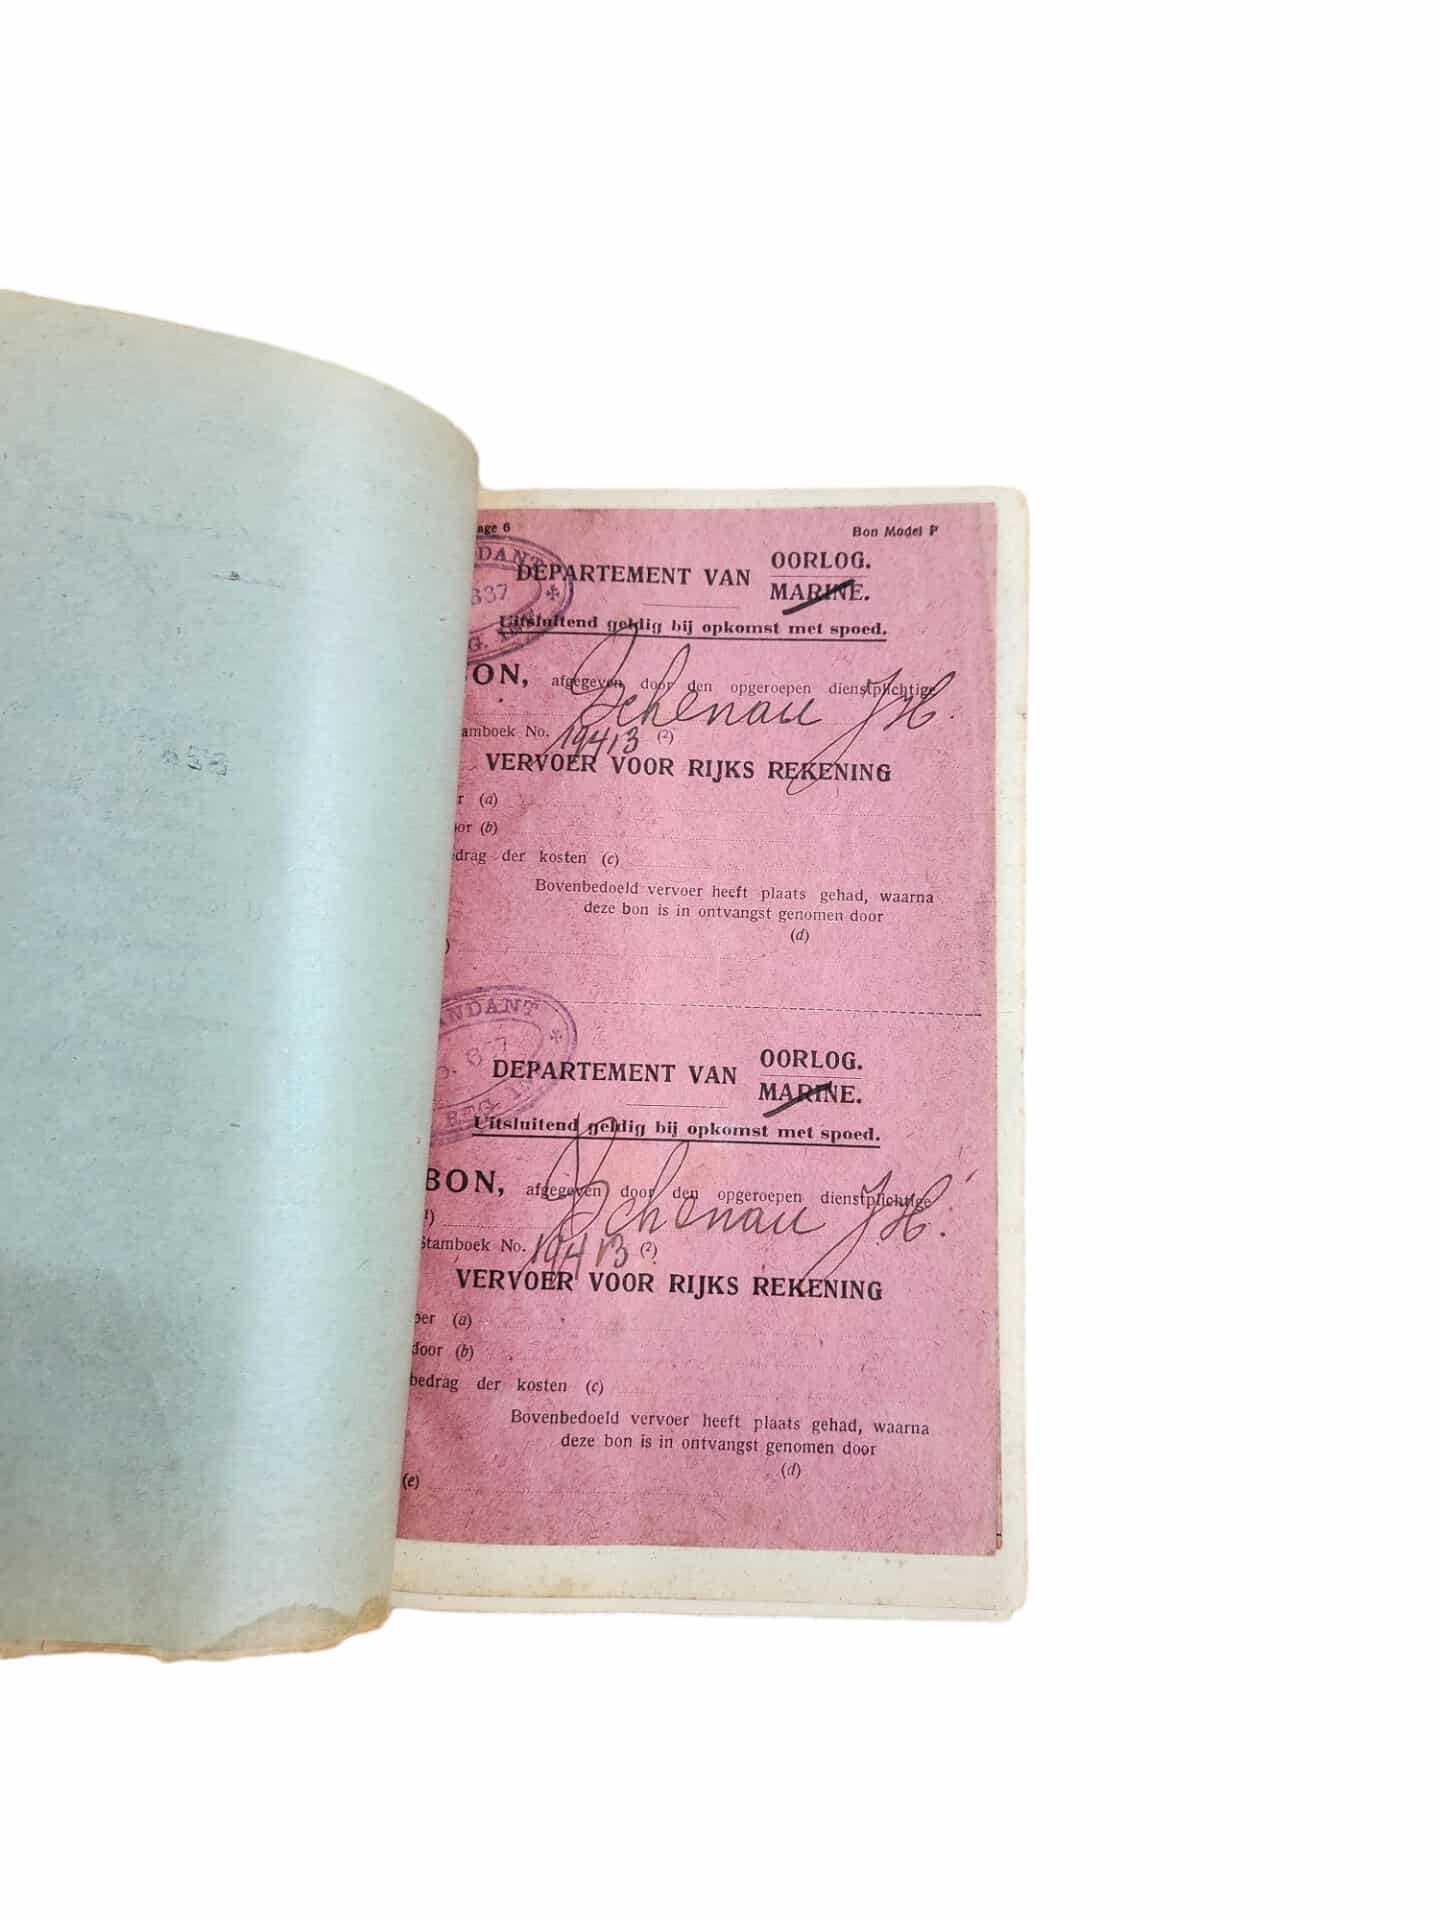 age 6 Bon Model P
DANT
637
G. INF.
DEPARTEMENT VAN OORLOG.
MARINE.
Uitsluitend geldig bij opkomst met spoed.
ON, afgegeven door den opgeroepen dienstplichtige
Schenau J H.
amboek No. 19413 (²)
VERVOER VOOR RIJKS REKENING
r (a)
oor (b)
edrag der kosten (c)
Bovenbedoeld vervoer heeft plaats gehad, waarna
deze bon is in ontvangst genomen door
(d)
)
NDANT
637
REG. I
DEPARTEMENT VAN OORLOG.
MARINE.
Uitsluitend geldig bij opkomst met spoed.
BON, afgegeven door den opgeroepen dienstplichtige
¹) Schenau J. H.
Stamboek No. 19413 (²)
VERVOER VOOR RIJKS REKENING
per (a)
door (b)
bedrag der kosten (c)
Bovenbedoeld vervoer heeft plaats gehad, waarna
deze bon is in ontvangst genomen door
(d)
(e)